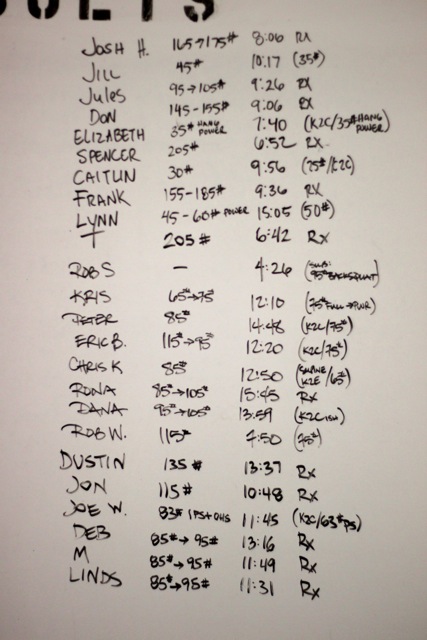 JOSH H. 165→175# 8:06 RX
JILL 45# 10:17 (35#)
JULES 95→105# 9:26 RX
DON 145-155# 9:06 RX
ELIZABETH 35# HANG POWER 7:40 (K2C/35# HANG POWER)
SPENCER 205# 6:52 RX
CAITLIN 30# 9:56 (25#/K2C)
FRANK 155-185# 9:36 RX
LYNN 45-60# POWER 15:05 (50#)
T 205# 6:42 RX
ROB S — 4:26 95# BACKSQUAT
KRIS 65#→75 12:10 (75# FULL→PWR)
PETER 85# 14:48 (K2C/75#)
ERIC B. 115#→95# 12:20 (K2C/75#)
CHRIS K 85# 12:50 K2E/65#)
RONA 85#→105# 15:45 RX
DANA 95#→105# 13:59 (K2C ISH)
ROB W. 115# 7:50 (75#)
DUSTIN 135# 13:37 RX
JON 115# 10:48 RX
JOE W. 83# 1PS+OHS 11:45 (K2C/63# PS)
DEB 85#→95# 13:16 RX
M 85#→95# 11:49 RX
LINDS 85#→95# 11:31 RX